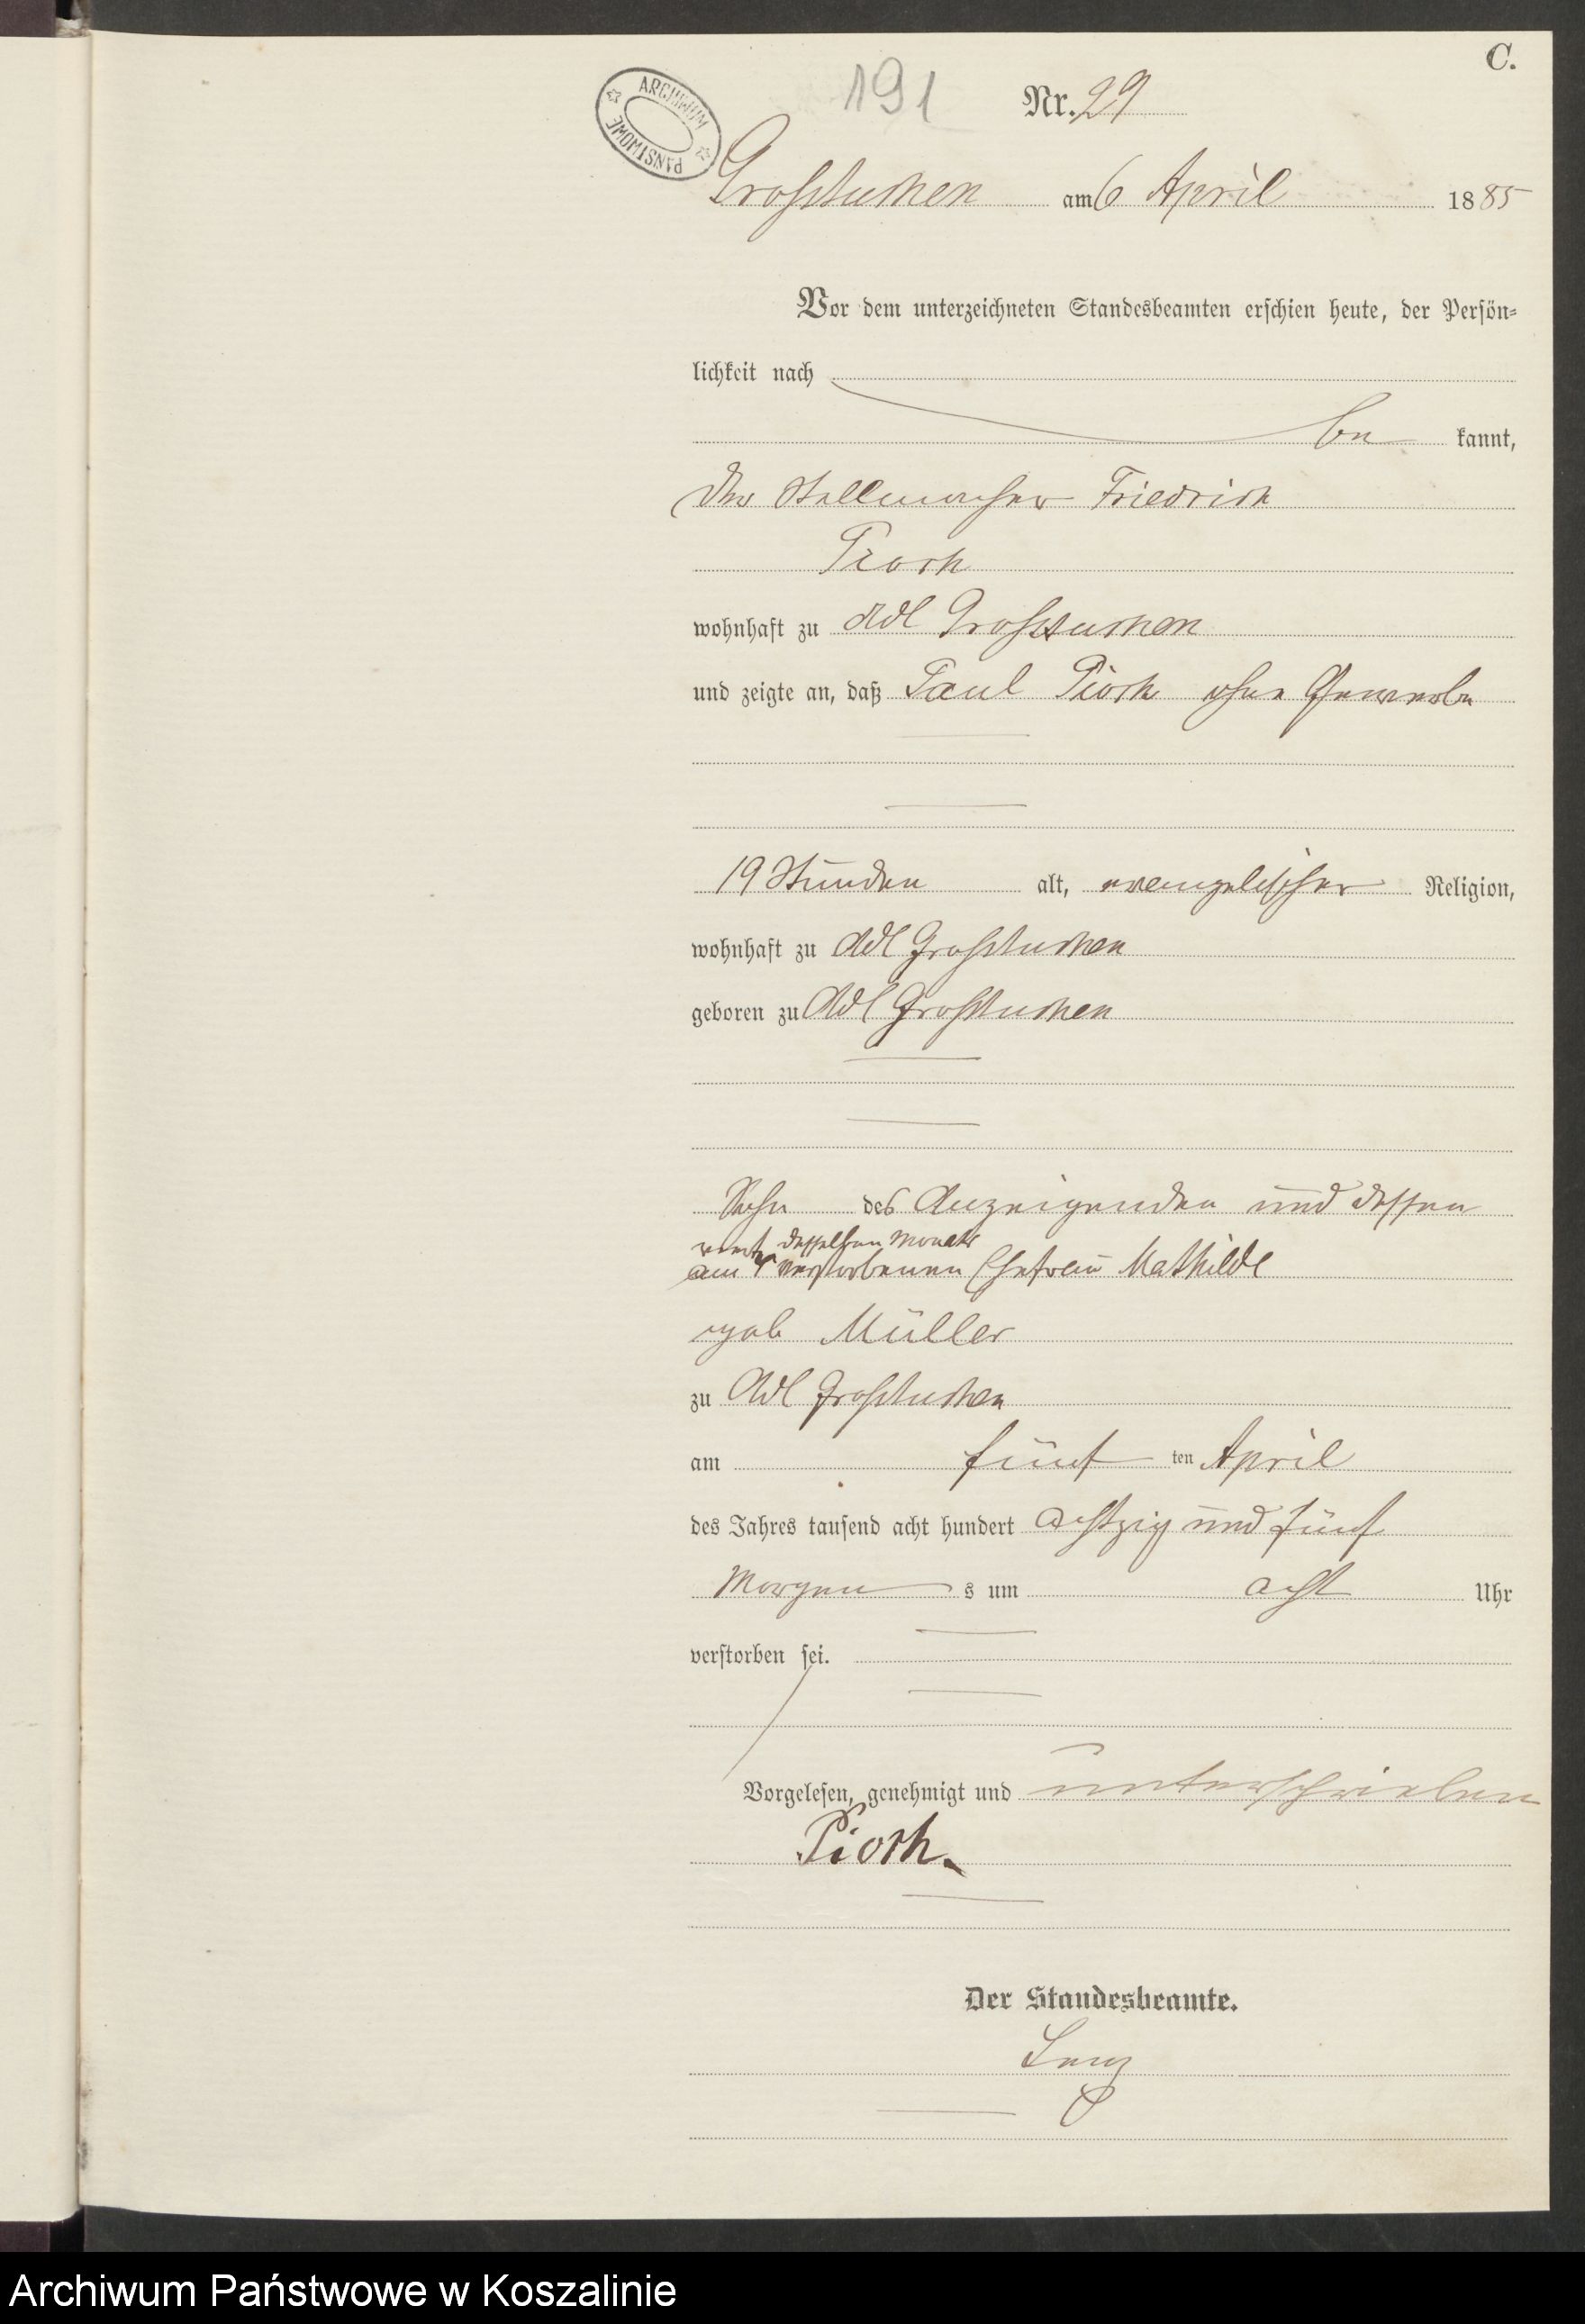 C.
191
Nr. 29
ARCHIWUM PAŃSTWOWE
Grosstuchen am 6 April 1885
Vor dem unterzeichneten Standesbeamten erschien heute, der Persön=
lichkeit nach
be kannt,
der Stellmacher Friedrich
Pioch
wohnhaft zu Adl Grosstuchen
und zeigte an, daß Paul Pioch ohne Gewerbe
19 Stunden alt, evangelischer Religion,
wohnhaft zu Adl Grosstuchen
geboren zu Adl Grosstuchen
Sohn des Anzeigenden und dessen
desselben Monats
am verstorbenen Ehefrau Mathilde
geb Müller
zu Adl Grosstuchen
am fünf ten April
des Jahres tausend acht hundert achtzig und fünf
Morgen s um acht Uhr
verstorben sei.
Vorgelesen, genehmigt und unterschrieben
Pioch.
Der Standesbeamte.
Archiwum Państwowe w Koszalinie